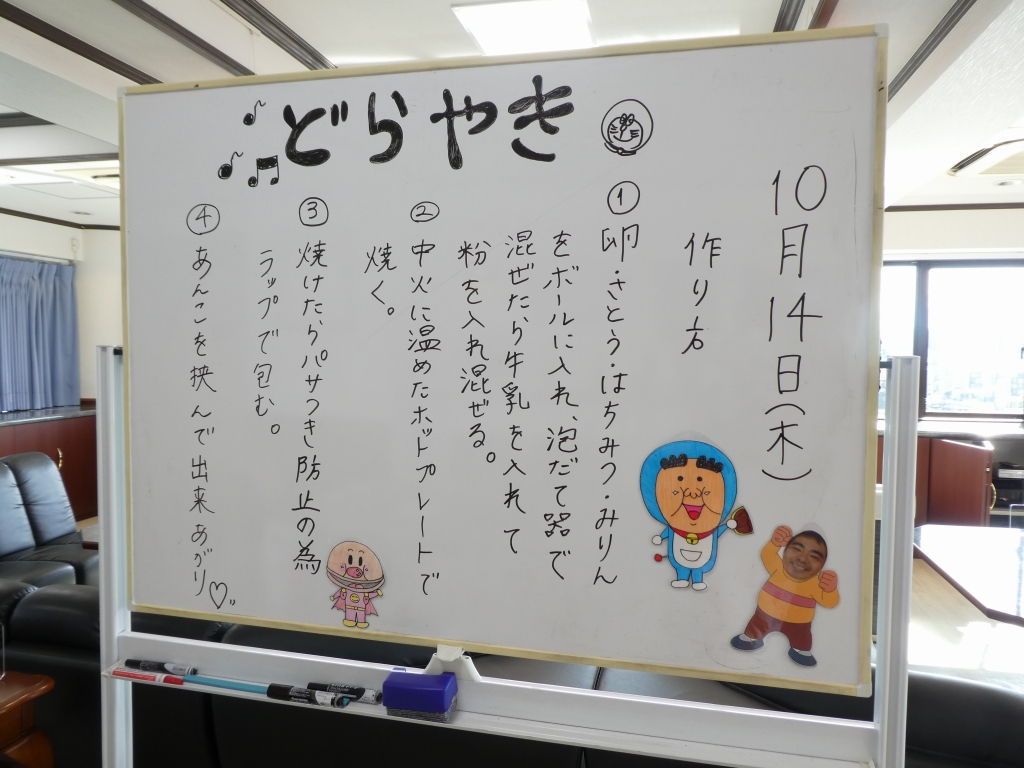 どらやき
10月14日(木)
作り方
① 卵・さとう・はちみつ・みりん
をボールに入れ、泡だて器で
混ぜたら牛乳を入れて
粉を入れ混ぜる。
② 中火に温めたホットプレートで
焼く。
③ 焼けたらパサつき防止の為
ラップで包む。
④ あんこを挟んで出来あがり♡